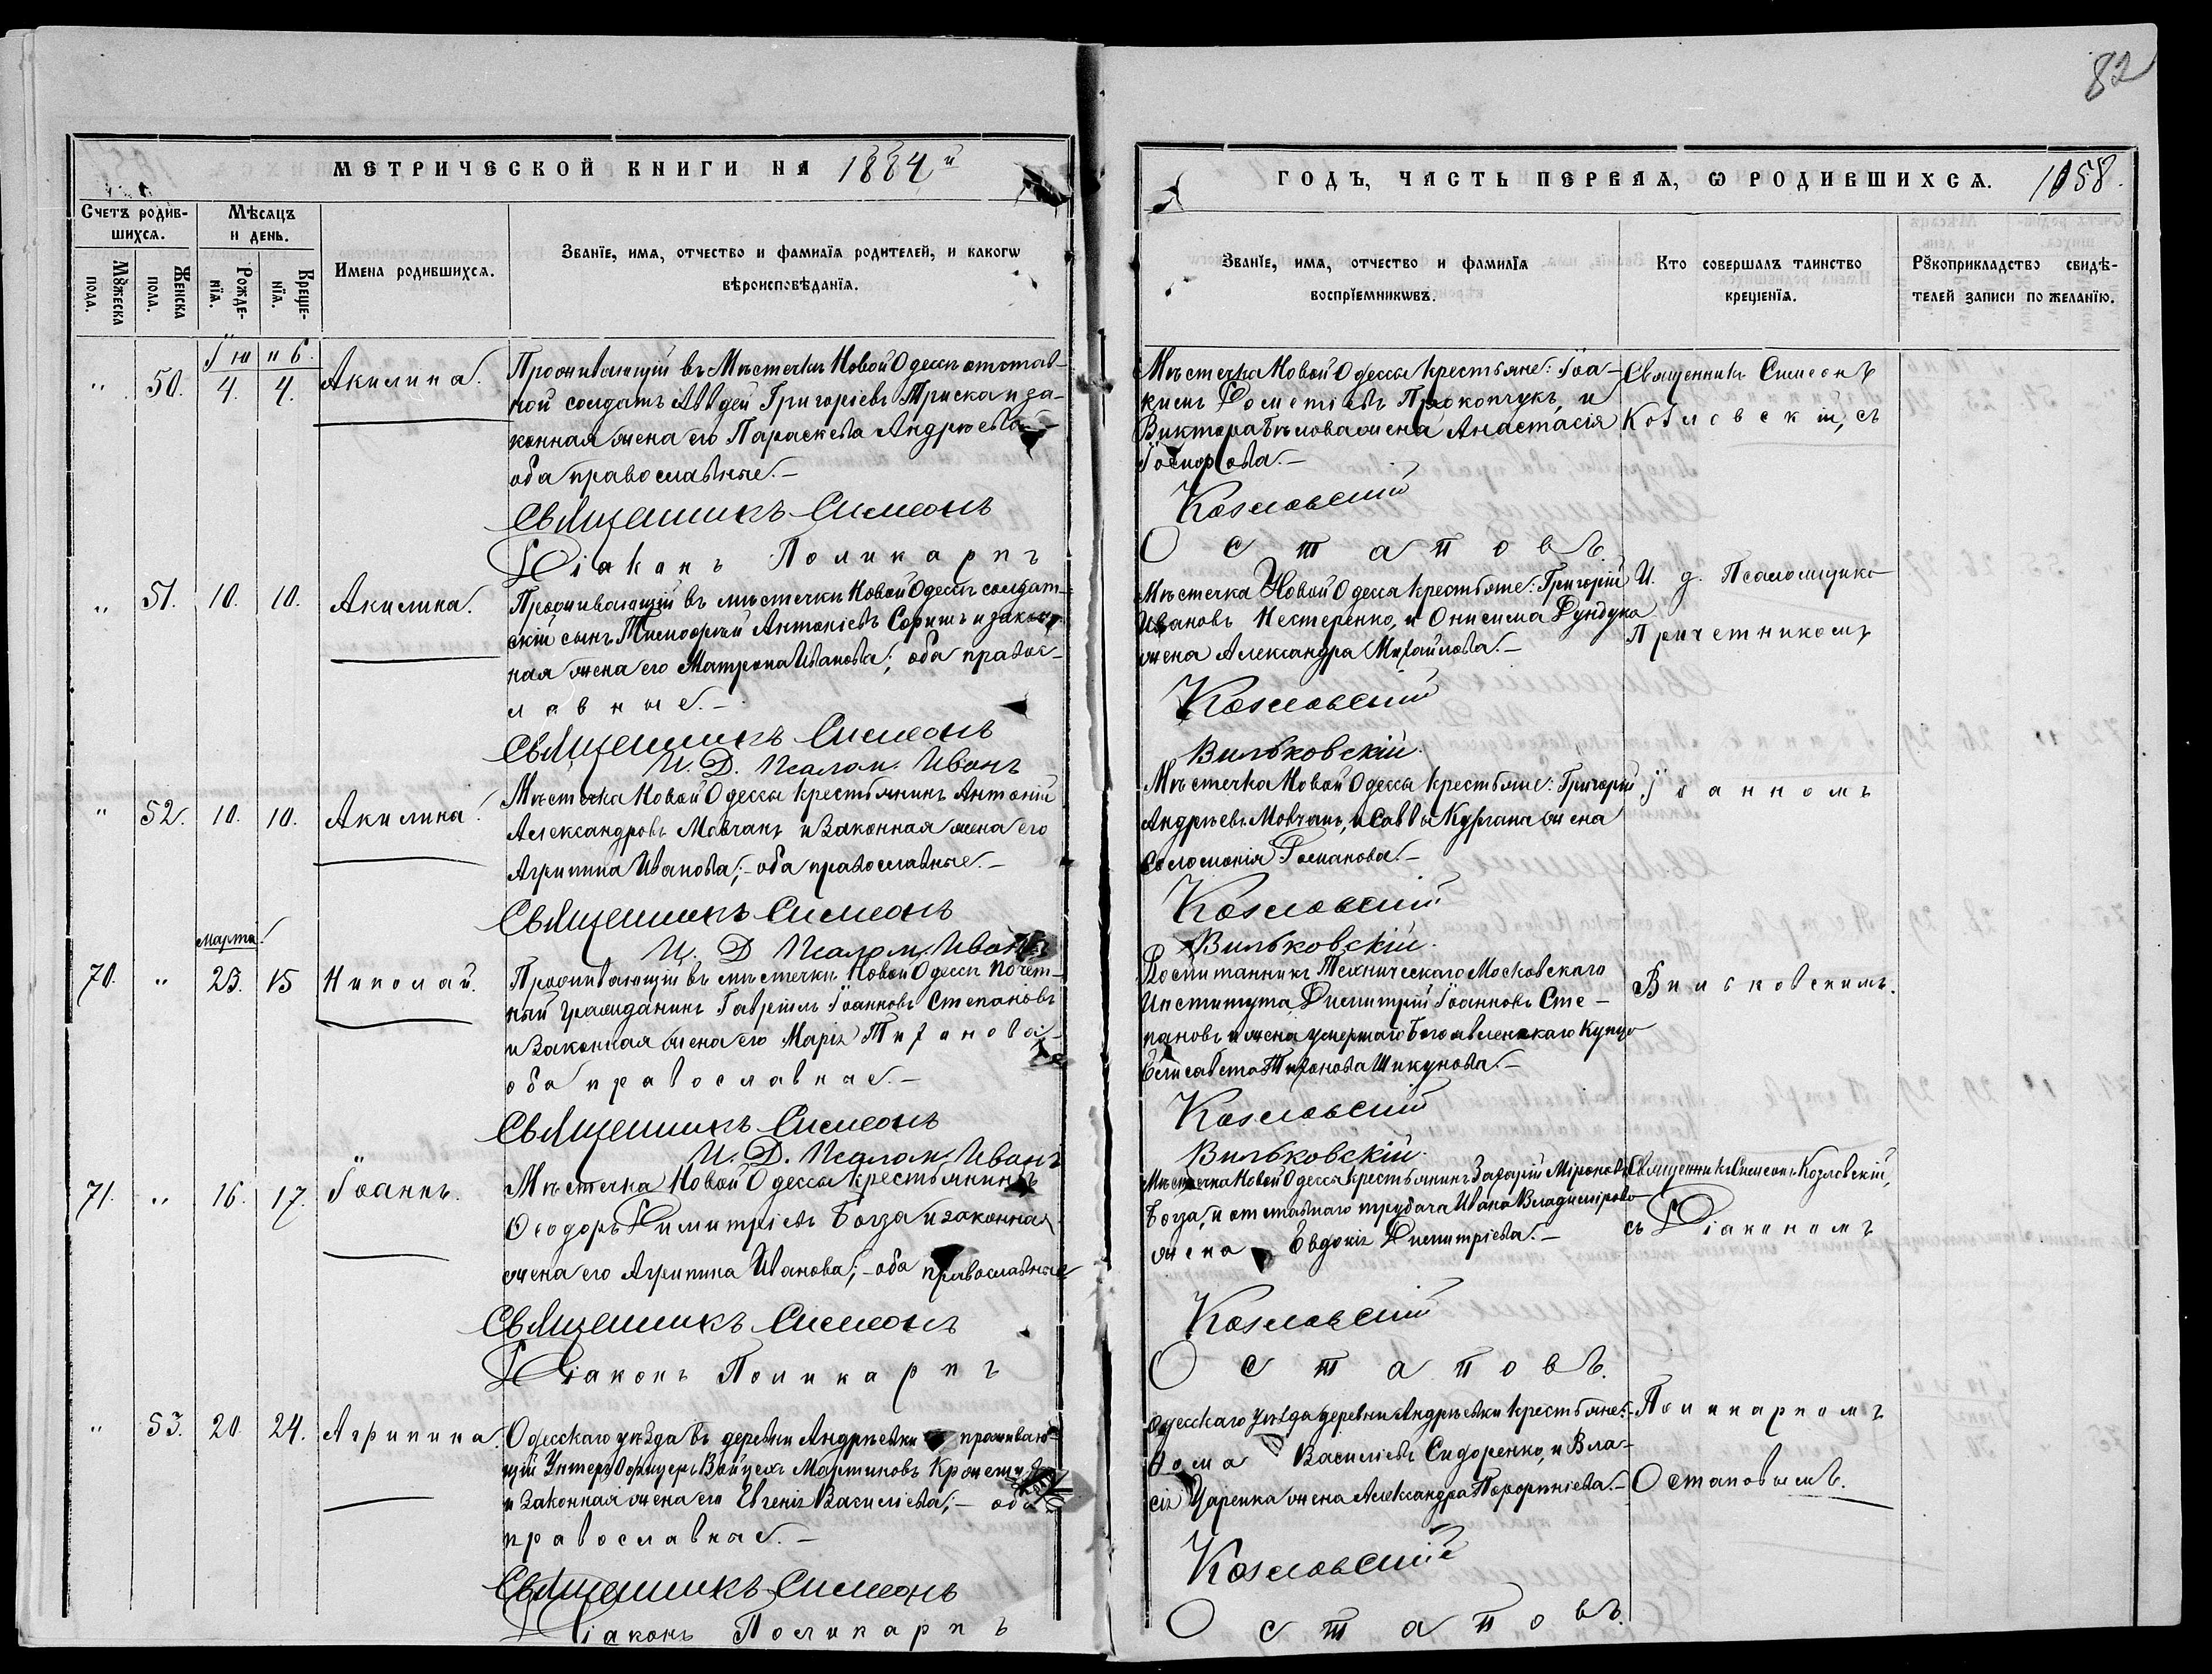 82
МЕТРИЧЕСКОЙ КНИГИ НА 1884й
ГОДЪ, ЧАСТЬ ПЕРВАЯ, Ѡ РОДИВШИХСѦ. 1058.
Счетъ родив-
шихсѧ.
Мѹжеска
пола.
Женска
пола.
Мѣсѧцъ
и день.
Рожде-
нїѧ.
Креще-
нїѧ.
Имена родившихсѧ.
Званїе, имѧ, отчество и фамилїѧ родителей, и какогѡ
вѣроисповѣданїѧ.
Званїе, имѧ, отчество и фамилїѧ
воспрїемникѡвъ.
Кто совершалъ таинство
крещенїѧ.
Рѹкоприкладство свидѣ-
телей записи по желанїю.
Іюнь.
„ 50. 4. 4. Акилина.
Проживающій въ Мѣстечкѣ Новой Одессѣ отстав-
ной солдатъ Авдей Григоріевъ Триска и за-
конная жена его Параскева Андреева
оба православные.—
Священникъ Симеонъ
Діаконъ Поликарпъ
Мѣстечка Новой Одессы крестьяне: Іоа-
кимъ Дометіевъ Прокопчукъ, и
Виктора Бѣлова жена Анастасія
Козловскій
Остаповъ.
Священникъ Симеонъ
Козловскій, съ
„ 51. 10. 10. Акилина.
Проживающій въ мѣстечкѣ Новой Одессѣ солдат-
скій сынъ Тимоѳей Антоніевъ и закон-
ная жена его Матрона Иванова; оба правос-
лавные.—
Священникъ Симеонъ
И. Д. Псалом. Иванъ
Мѣстечка Новой Одессы крестьяне: Григорій
Ивановъ Нестеренко, и Онисима Дундука
жена Александра Михайлова.—
Козловскій
Вильковскій.
И. д. Псаломщика
Причетникомъ
„ 52. 10. 10. Акилина.
Мѣстечка Новой Одессы крестьянинъ Антоній
Александровъ Мовчанъ и законная жена его
Агрипина Иванова;— оба православные.—
Священникъ Симеонъ
И. Д. Псалом. Иванъ
Мѣстечка Новой Одессы крестьяне: Григорій
Андреевъ Мовчанъ, и Саввы Кургана жена
Соломонія Романова.—
Козловскій
Вильковскій.
Іоанномъ
Марта.
70. „ 23. 15 Николай.
Проживающій въ мѣстечкѣ Новой Одессѣ почет-
ный гражданинъ Гавріилъ Іоанновъ Степановъ
и законная жена его Марія Тихонова
оба православные.—
Священникъ Симеонъ
И. Д. Псалом. Иванъ
Воспитанникъ Техническаго Московскаго
Института Димитрій Іоанновъ Сте-
пановъ и жена умершаго Богоявленскаго Купца
Елисавета Тихонова Шикунова.—
Козловскій
Вильковскій.
Вильковскимъ.
71. „ 16. 17. Іоаннъ.
Мѣстечка Новой Одессы крестьянинъ
Ѳеодоръ Димитріевъ Богза и законная
жена его Агрипина Иванова;— оба православные
Священникъ Симеонъ
Діаконъ Поликарпъ
Мѣстечка Новой Одессы крестьянинъ Захарій Міроновъ
Богза, и отставнаго трубача Ивана Владимірова
жена Евдокія Димитріева.—
Козловскій
Остаповъ.
Священникъ Симеонъ Козловскій,
съ Діакономъ
„ 53. 20. 24. Агрипина.
Одесскаго уѣзда въ деревни Андреевки проживаю-
щій Унтеръ Офицеръ Войцехъ Мартиновъ
и законная жена его Евгенія Василіева;— оба
православные.—
Священникъ Симеонъ
Діаконъ Поликарпъ
Одесскаго уѣзда деревни Андреевки крестьяне:
Ѳома Василіевъ Сидоренко, и Вла-
сія Царенка жена Александра
Козловскій
Остаповъ.
Поликарпомъ
Остаповымъ.